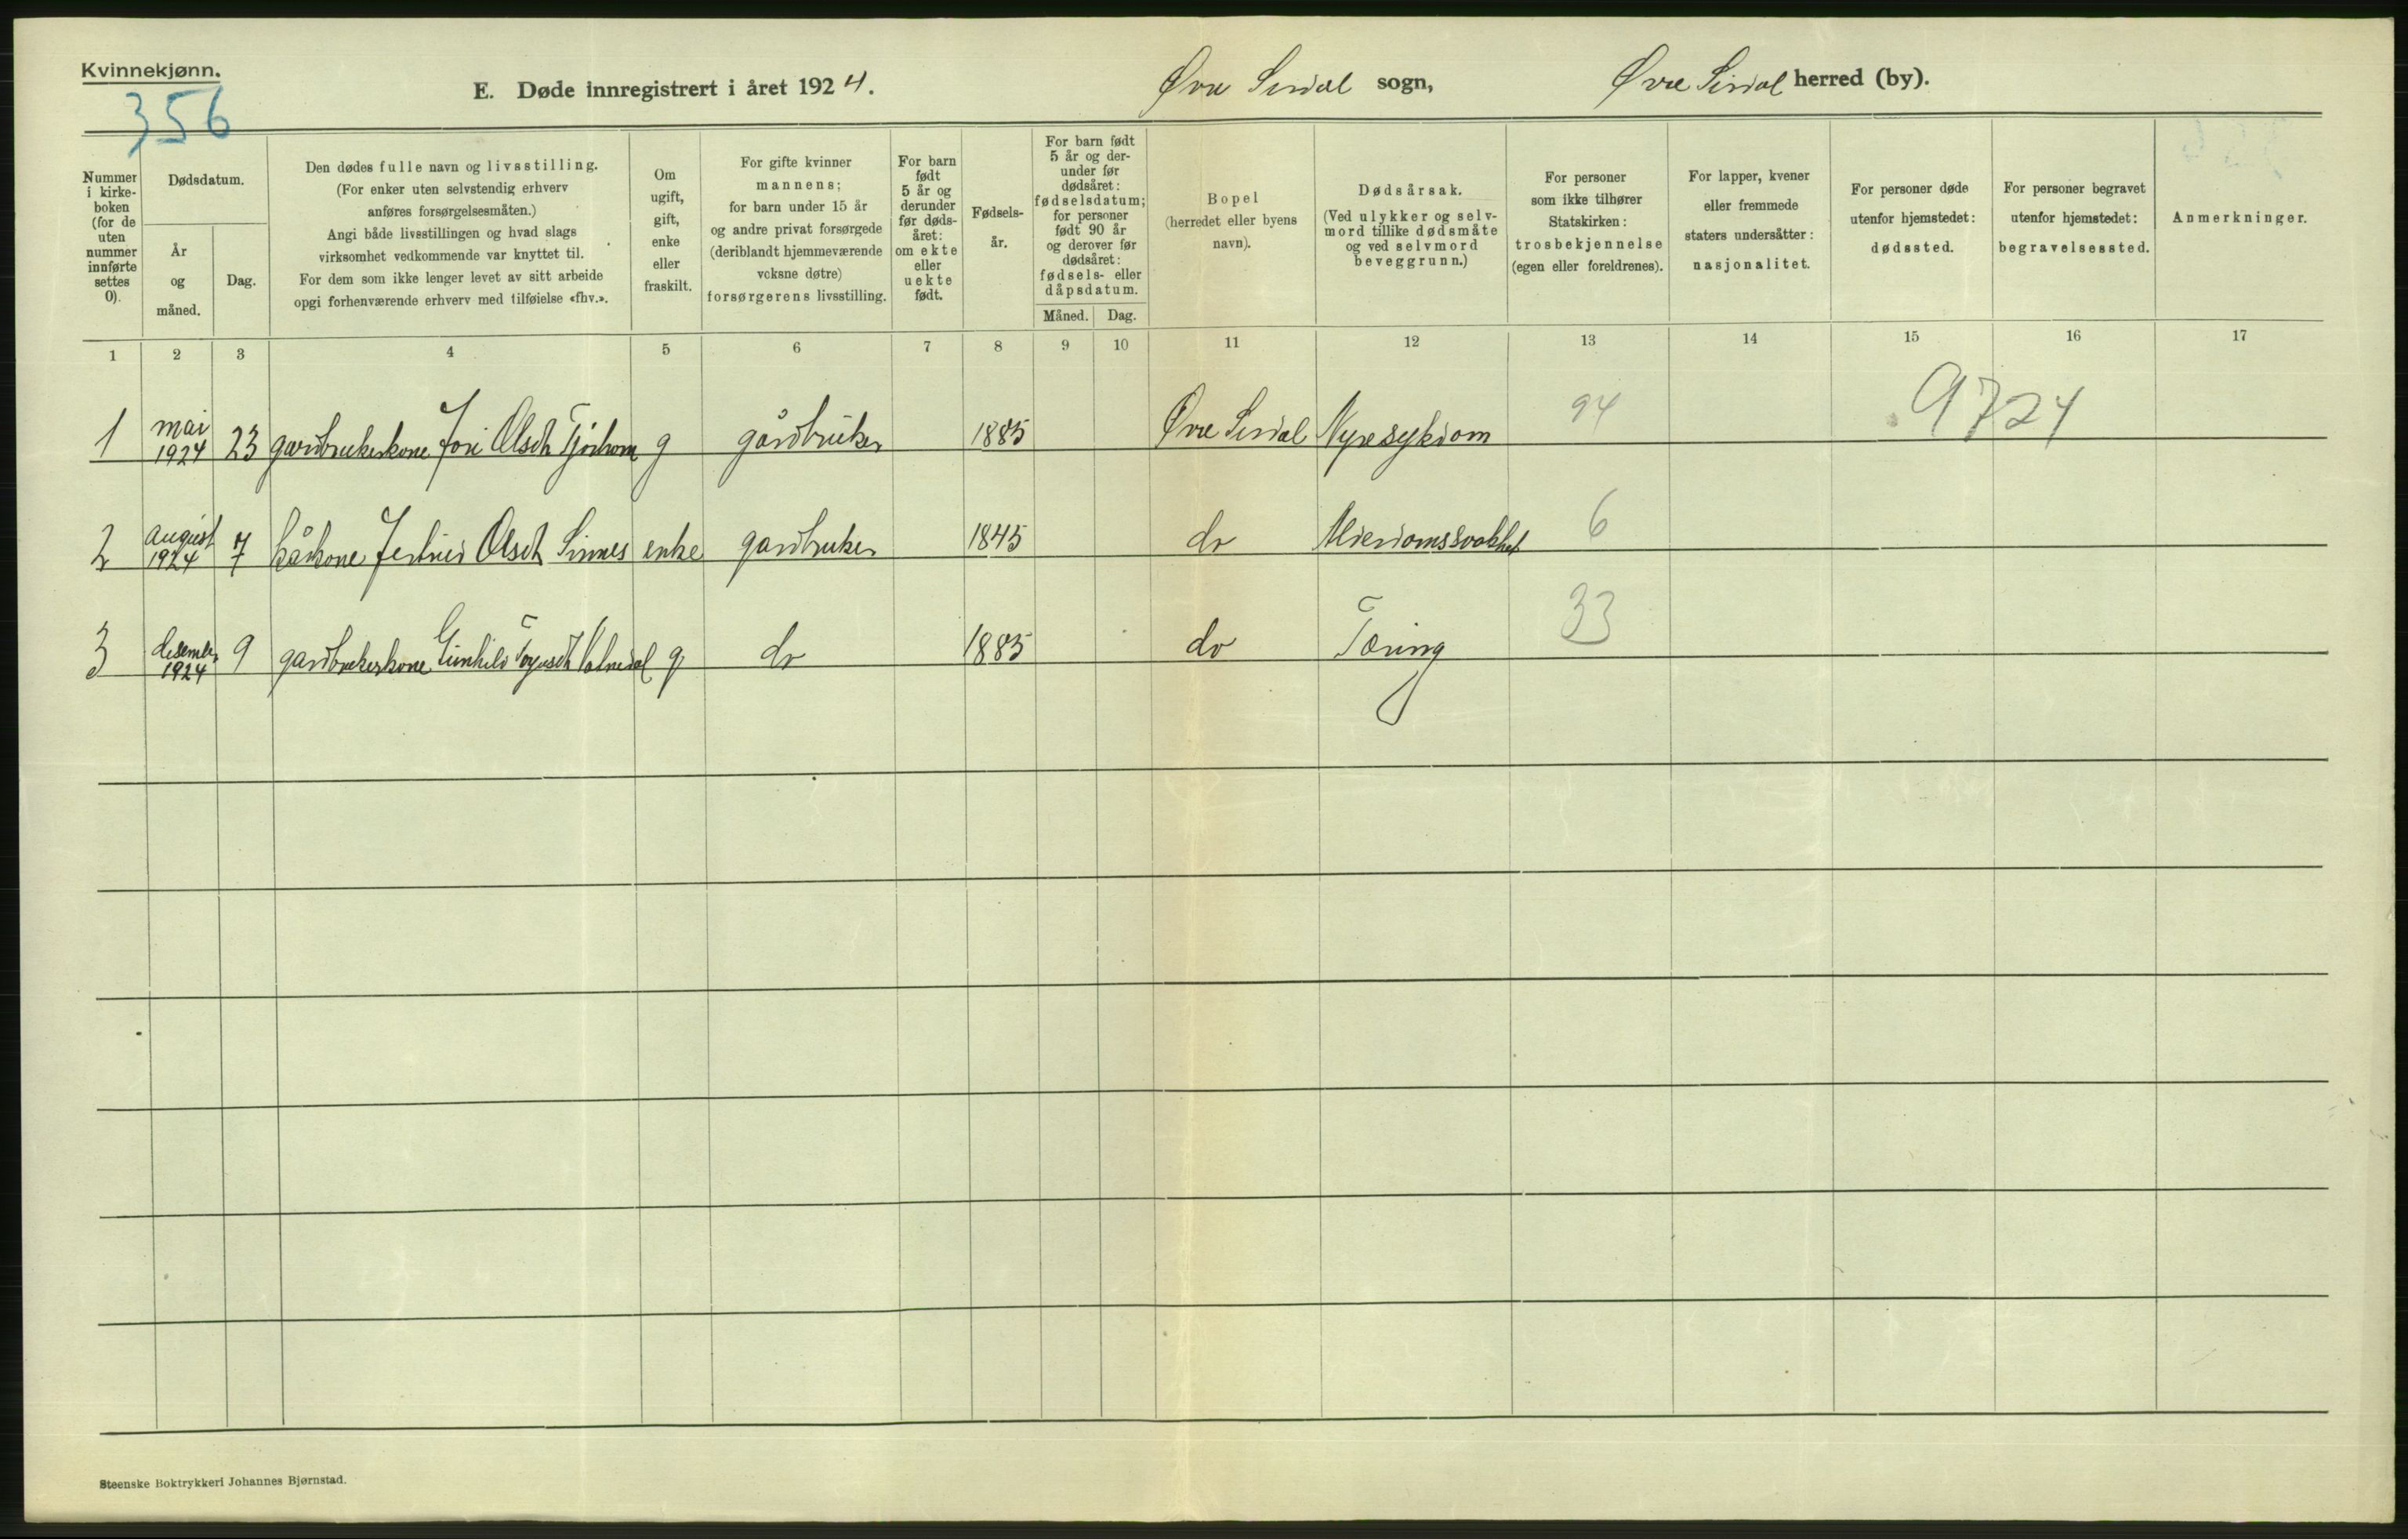 Kvinnekjønn.
356
E. Døde innregistrert i året 1924.
Øvre Sirdal sogn,
Øvre Sirdal herred (by).
Nummer i kirke-
boken
(for de
uten
nummer
innførte
settes
0).
Dødsdatum.
År
og
måned.
Dag.
Den dødes fulle navn og livsstilling.
(For enker uten selvstendig erhverv
anføres forsørgelsesmåten.)
Angi både livsstillingen og hvad slags
virksomhet vedkommende var knyttet til.
For dem som ikke lenger levet av sitt arbeide
opgi forhenværende erhverv med tilføielse «fhv.».
Om
ugift,
gift,
enke
eller
fraskilt.
For gifte kvinner
mannens;
for barn under 15 år
og andre privat forsørgede
(deriblandt hjemmeværende
voksne døtre)
forsørgerens livsstilling.
For barn
født
5 år og
derunder
før døds-
året:
om ekte
eller
uekte
født.
Fødsels-
år.
For barn født
5 år og der-
under før
dødsåret:
fødselsdatum;
for personer
født 90 år
og derover før
dødsåret:
fødsels- eller
dåpsdatum.
Måned. Dag.
Bopel
(herredet eller byens
navn).
Dødsårsak.
(Ved ulykker og selv-
mord tillike dødsmåte
og ved selvmord
beveggrunn.)
For personer
som ikke tilhører
Statskirken:
trosbekjennelse
(egen eller foreldrenes).
For lapper, kvener
eller fremmede
staters undersåtter:
nasjonalitet.
For personer døde
utenfor hjemstedet:
dødssted.
For personer begravet
utenfor hjemstedet:
begravelsessted.
Anmerkninger.
1 2 3 4 5 6 7 8 9 10 11 12 13 14 15 16 17
1 mai 1924 23 gardbrukerkone Jori Olsdt Tjörhom g gårdbruker 1885 Øvre Sirdal Nyresykdom 94 9724
2 august 1924 7 kårkone Olsdt Sinnes enke gardbruker 1845 do Alderdomssvakhet 6
3 desember 1924 9 gardbrukerkone Gunhild g do 1885 do Tæring 33
Steenske Boktrykkeri Johannes Bjørnstad.